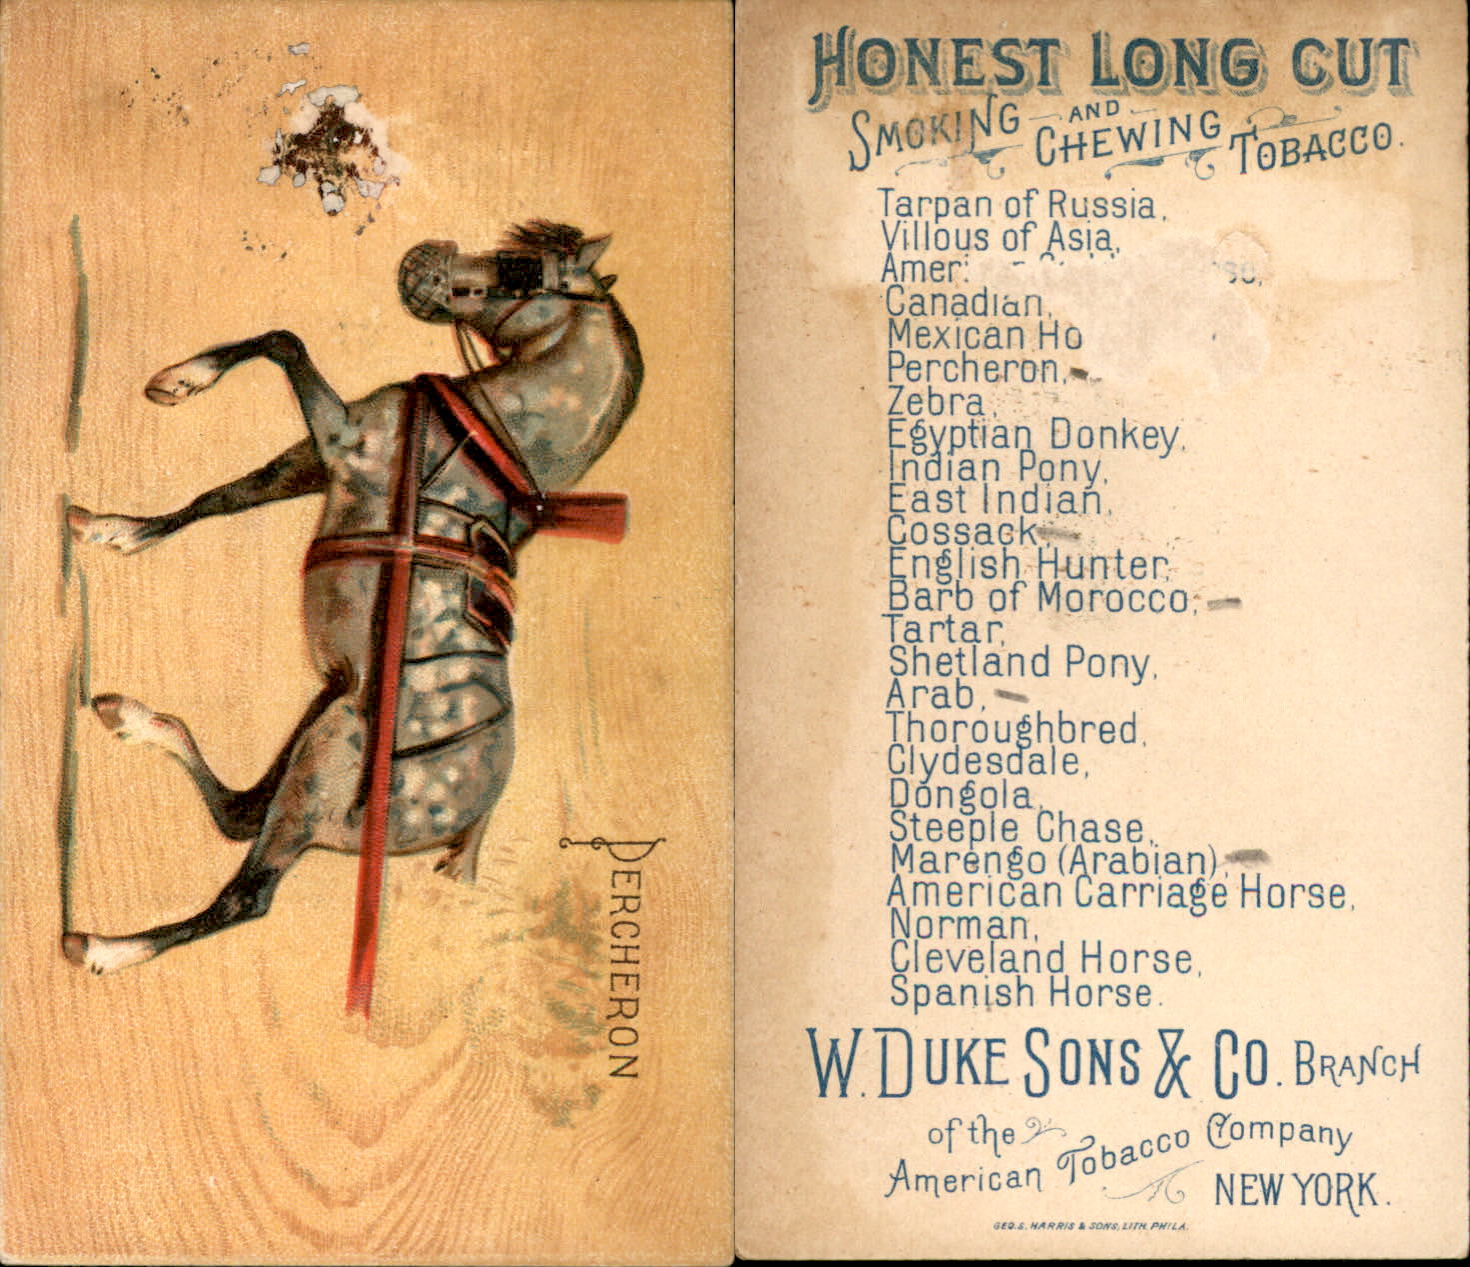 PERCHERON
HONEST LONG CUT
SMOKING AND CHEWING TOBACCO.
Tarpan of Russia,
Villous of Asia,
Canadian,
Mexican Ho
Percheron,
Zebra,
Egyptian Donkey,
Indian Pony,
East Indian,
Cossack,
English Hunter,
Barb of Morocco,
Tartar,
Shetland Pony,
Arab,
Thoroughbred,
Clydesdale,
Dongola,
Steeple Chase,
Marengo (Arabian),
American Carriage Horse,
Norman,
Cleveland Horse,
Spanish Horse.
W. DUKE SONS & CO. BRANCH
of the
American Tobacco Company
NEW YORK.
GEO. S. HARRIS & SONS, LITH. PHILA.